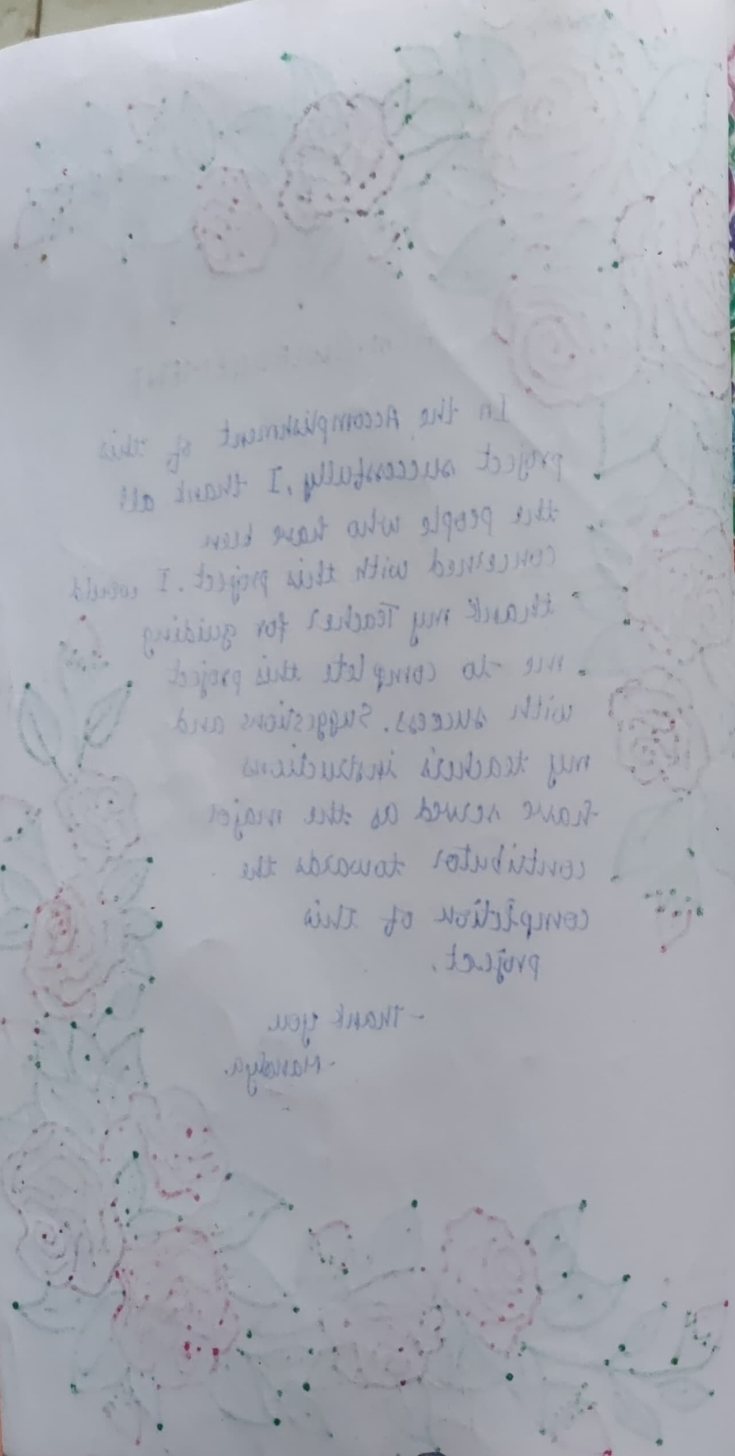 In the Accomplishment of this
project successfully, I thank all
the people who have been
concerned with this project. I would
thank my Teacher for guiding
me to complete this project
with success. Suggestions and
my teacher's instructions
have served as the major
contributor towards the
completion of this
project.
- Thank you.